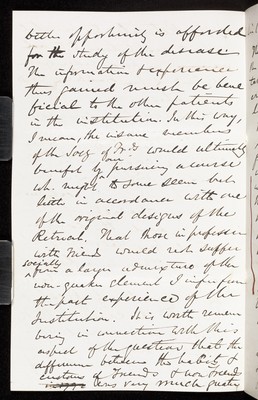 better opportunity is afforded
for the study of the disease.
The information & experience
thus gained must be bene
ficial to the other patients
in the institution. In this way,
I mean, the insane members
of the Socy of Frds would ultimately
benefit by our pursuing a course
wh. might to some seem but
little in accordance with one
of the original designs of the
Retreat. That those in profession
with Friends would not suffer
socially from a larger admixture of the
non-quaker element I infer from
the past experience of the
Institution. It is worth remem
bering in connection with this
aspect of the question that the
difference between the habits &
customs of Friends & non Friends
was very much greater